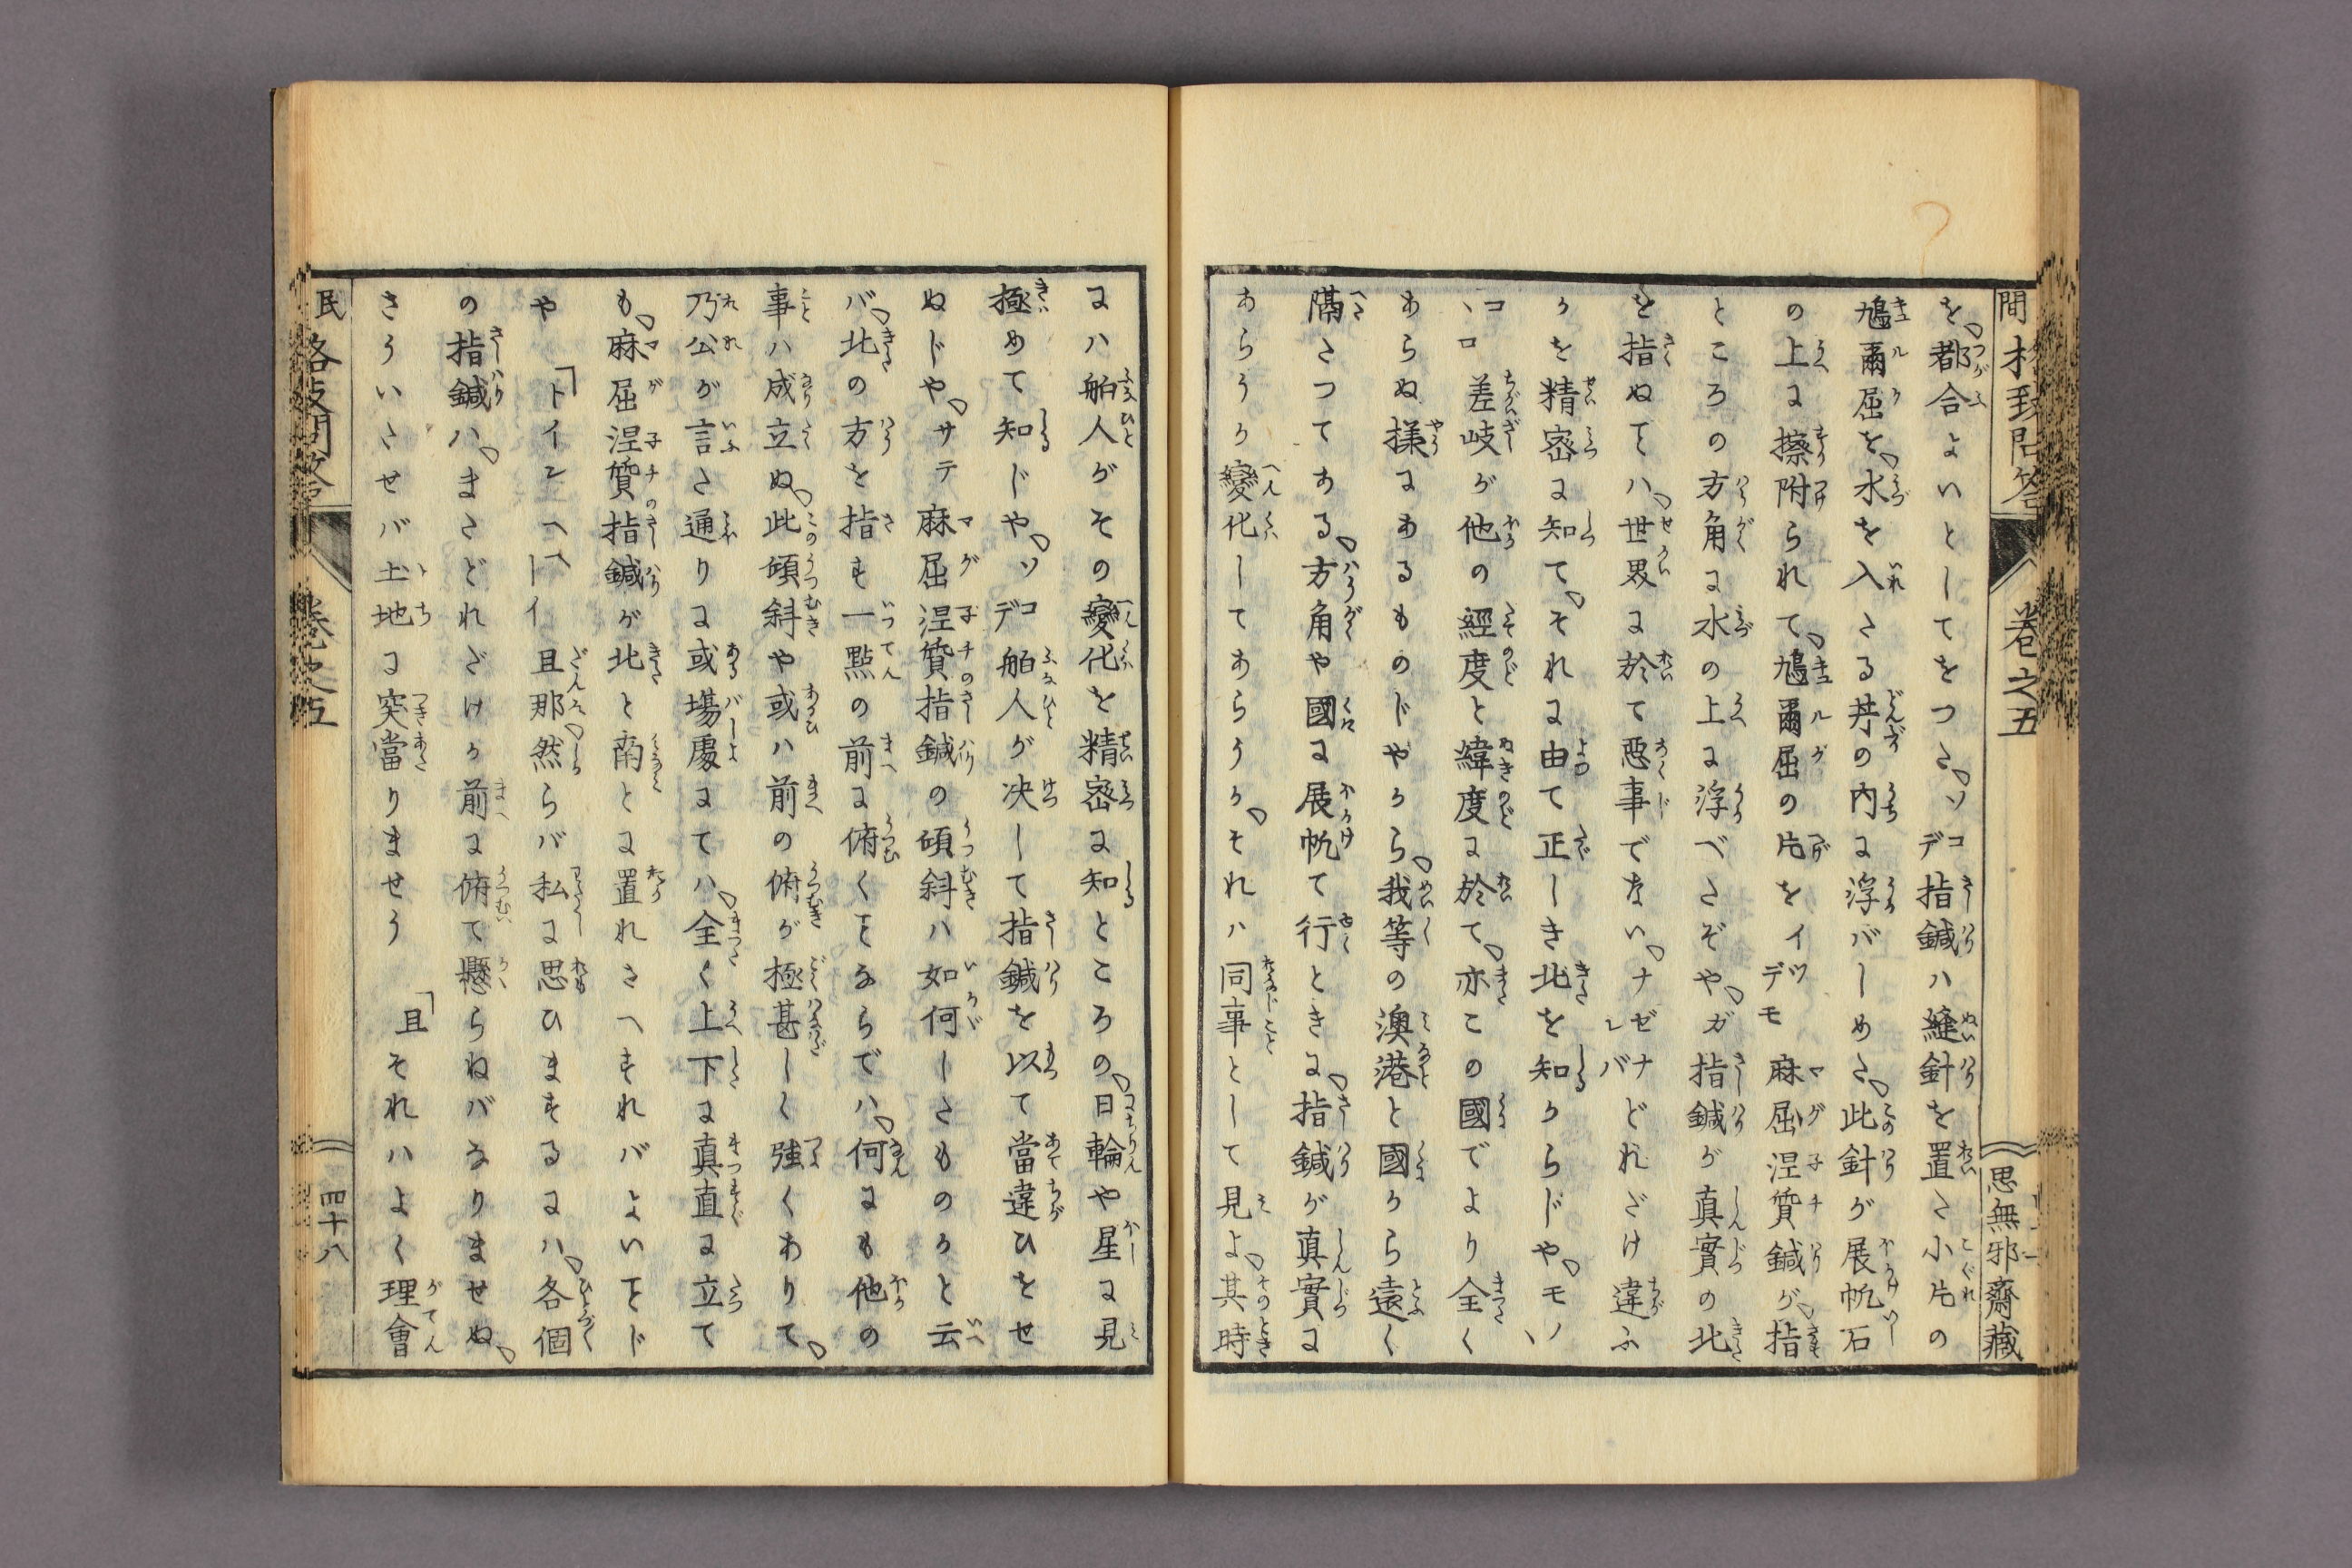 を、都合よいとしてをつた、ソコデ指鍼ハ縫針を置た小片の
鳩爾屈を、水を入たる丼の内に浮バしめた、此針が展帆石
の上に擦附られて、鳩爾屈の片をイツデモ麻屈涅質鍼が、指
ところの方角に水の上に浮べたぞや、ガ指鍼が真實の北
を指ぬとハ、世界に於て惡事でない、ナゼナレバどれだけ違ふ
かを精密に知て、それに由て正しき北を知からじや、モソ
ツトコ差岐が他の經度と緯度に於て、亦この國でより全く
あらぬ様にあるものじやから、我等の湊港と國から遠く
隔たつてある、方角や國に展帆て行ときに、指鍼が真實に
あらうか變化してあらうか、それハ同事として見よ、其時
卷之五
思無邪齋藏
にハ舶人がその變化を精密に知ところの、日輪や星に見
極めて知じや、ソコデ舶人が決して指鍼を以て當違ひをせ
ぬじや、サテ麻屈涅質指鍼の傾斜ハ如何したものかと云
バ、北の方を指す一點の前に俯くとならでハ、何にも他の
事ハ成立ぬ、此傾斜や或ハ前の俯が極甚しく強くありて、
乃公が言た通りに或場處にてハ、全く上下に真直に立て
も、麻屈涅質指鍼が北と南とに置れさへすれバよいとじ
や「トイレヘ、ーイ且那然らバ私に思ひまするにハ、各個
の指鍼ハ、まさどれだけか前に俯て懸らねバなりませぬ、
さういたせバ土地に突當りませう「且それハよく理會
民
格致問答
卷之五
四十八